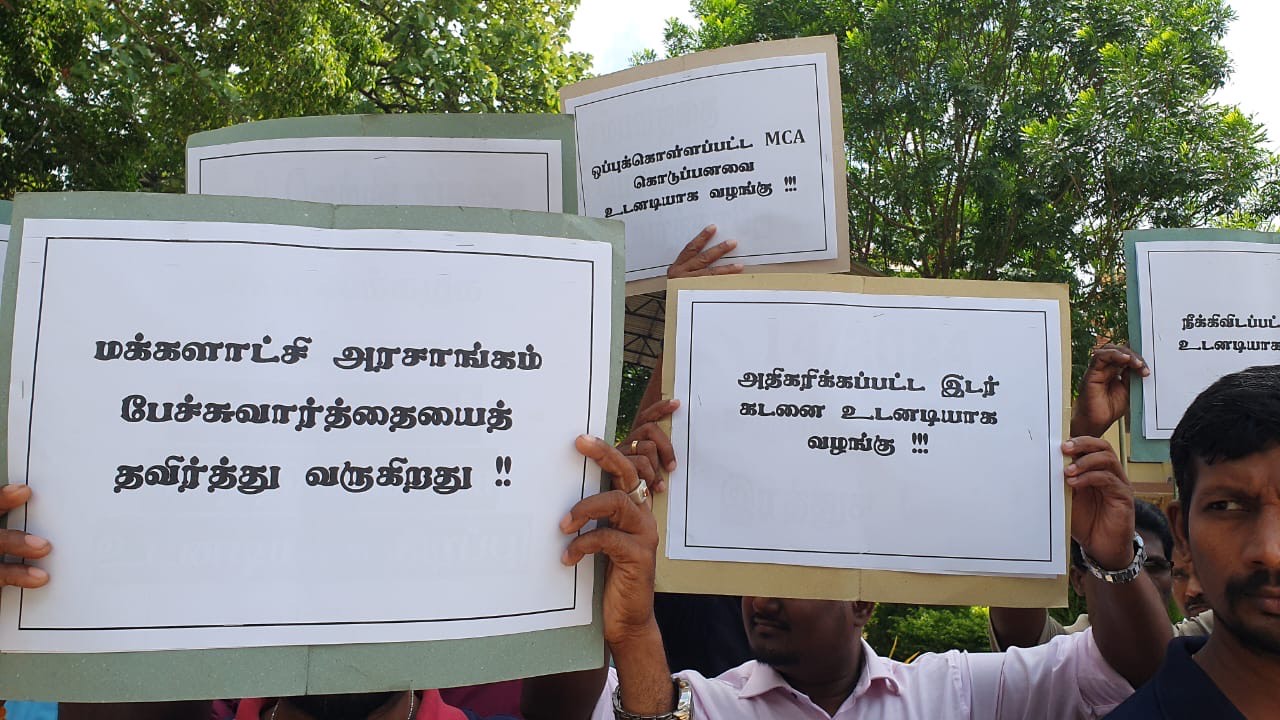 ஒப்புக்கொள்ளப்பட்ட MCA
கொடுப்பனவை
உடனடியாக வழங்கு !!!
மக்களாட்சி அரசாங்கம்
பேச்சுவார்த்தையைத்
தவிர்த்து வருகிறது !!
அதிகரிக்கப்பட்ட இடர்
கடனை உடனடியாக
வழங்கு !!!
நீக்கிவிடப்பட்
உடனடியாக